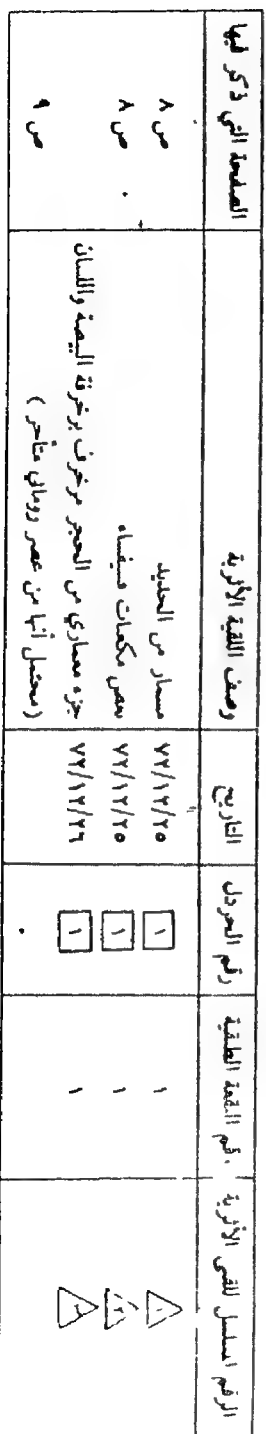 الرقم المسلسل للقى الأثرية رقم البقعة الطبقية رقم الجردل التاريخ وصف اللقية الأثرية الصفحة التي ذكر فيها
١ ١ ١ ٧٢/١٢/٢٥ مسمار من الحديد ص ٨
٢ ١ ١ ٧٢/١٢/٢٥ بعض مكعبات فسيفساء ص ٨
٣ ١ ١ ٧٢/١٢/٢٦ جزء معماري من الحجر مزخرف بزخرفة البيضة واللسان ص ٩
(محتمل أنها من عصر روماني متأخر)